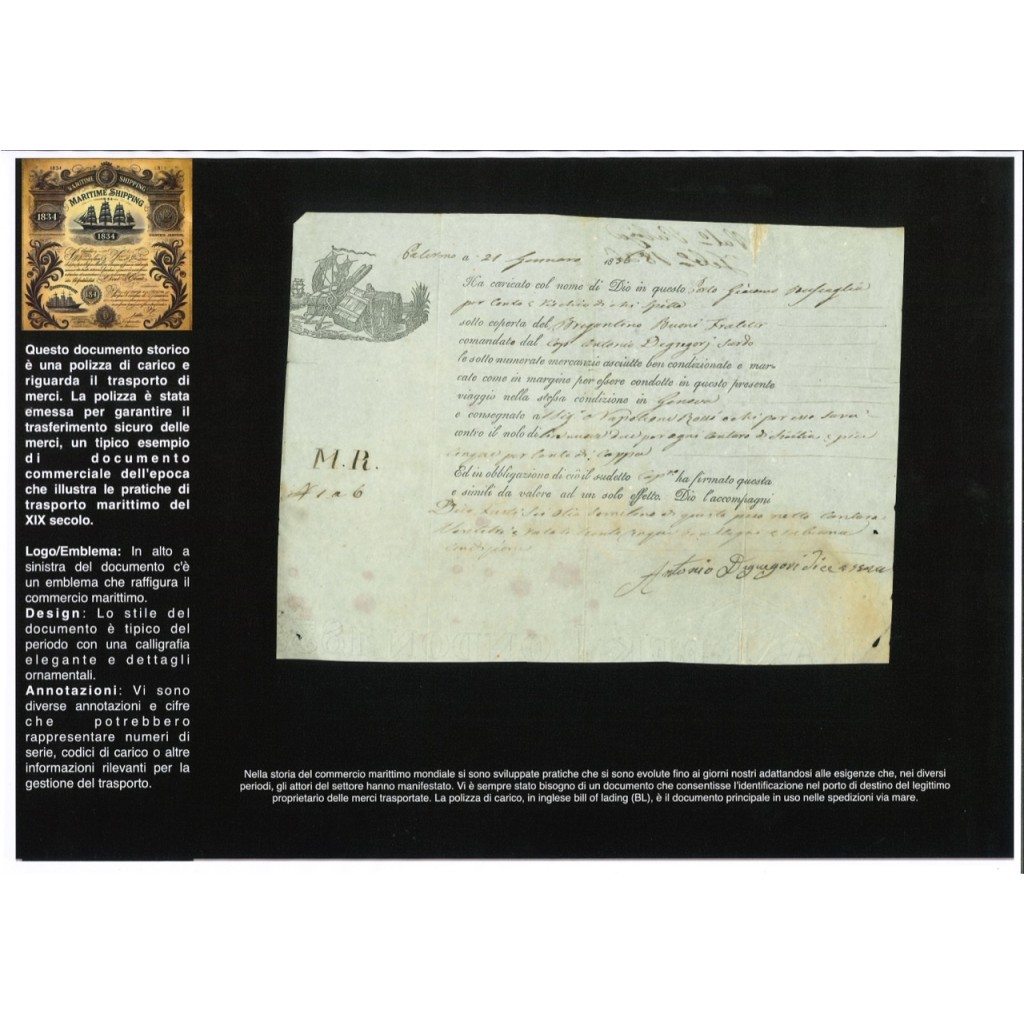 1834
MARITIME SHIPPING
MARITIME SHIPPING
1834
1834
Questo documento storico
è una polizza di carico e
riguarda il trasporto di
merci. La polizza è stata
emessa per garantire il
trasferimento sicuro delle
merci, un tipico esempio
di documento
commerciale dell'epoca
che illustra le pratiche di
trasporto marittimo del
XIX secolo.
Logo/Emblema: In alto a
sinistra del documento c'è
un emblema che raffigura il
commercio marittimo.
Design: Lo stile del
documento è tipico del
periodo con una calligrafia
elegante e dettagli
ornamentali.
Annotazioni: Vi sono
diverse annotazioni e cifre
che potrebbero
rappresentare numeri di
serie, codici di carico o altre
informazioni rilevanti per la
gestione del trasporto.
Palermo a 21 Gennaro 1836
Ha caricato col nome di Dio in questo Porto Giacomo
per Conto e
sotto coperta del Brigantino Buoni Fratelli
comandato dal Cap. Antonio Degregorj Sardo
le sotto numerate mercanzie asciutte ben condizionate e mar-
cate come in margine per essere condotto in questo presente
viaggio nella stessa condizione in Genova
e consegnate al Sig. Napoleone Rossi o chi per esso sarà
contro il nolo di per ogni cantaro di Sicilia e più
cinque per cento di Cappa
M.R.
Ed in obbligazione di ciò il sudetto Cap.ne ha firmato questa
N 1 a 6
e simili da valere ad un solo effetto. Dio l'accompagni
Antonio Degregori
Nella storia del commercio marittimo mondiale si sono sviluppate pratiche che si sono evolute fino ai giorni nostri adattandosi alle esigenze che, nei diversi
periodi, gli attori del settore hanno manifestato. Vi è sempre stato bisogno di un documento che consentisse l'identificazione nel porto di destino del legittimo
proprietario delle merci trasportate. La polizza di carico, in inglese bill of lading (BL), è il documento principale in uso nelle spedizioni via mare.